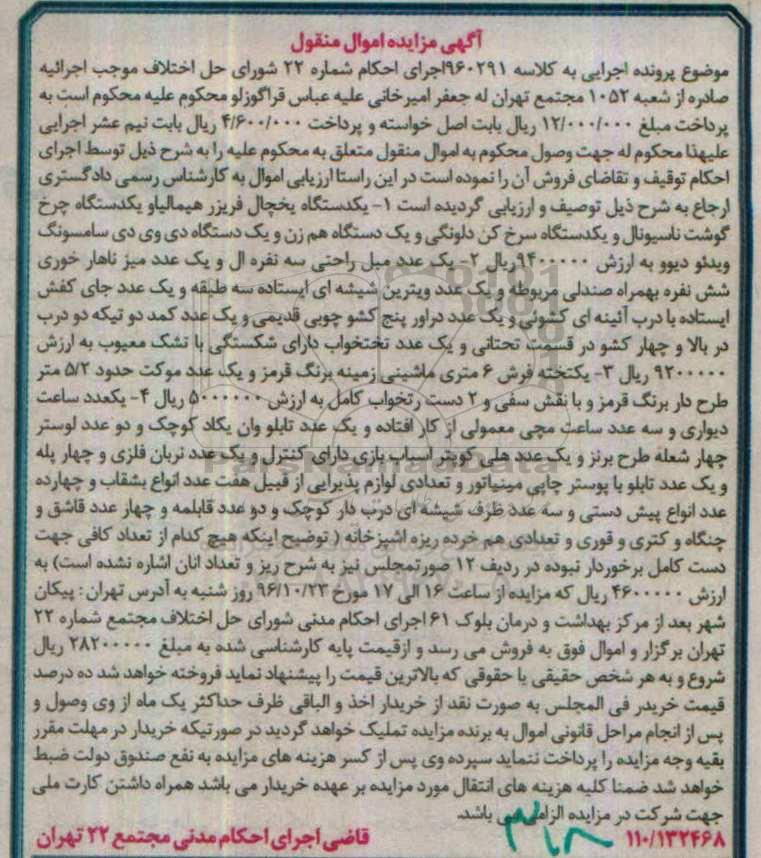 آگهی مزایده اموال منقول
موضوع پرونده اجرایی به کلاسه ۹۶۰۲۹۱اجرای احکام شماره ۲۲ شورای حل اختلاف موجب اجرائیه
صادره از شعبه ۱۰۵۲ مجتمع تهران له جعفر امیرخانی علیه عباس قراگوزلو محکوم علیه محکوم است به
پرداخت مبلغ ۱۲/۰۰۰/۰۰۰ ریال بابت اصل خواسته و پرداخت ۴/۶۰۰/۰۰۰ ریال بابت نیم عشر اجرایی
علیهذا محکوم له جهت وصول محکوم به اموال منقول متعلق به محکوم علیه را به شرح ذیل توسط اجرای
احکام توقیف و تقاضای فروش آن را نموده است در این راستا ارزیابی اموال به کارشناس رسمی دادگستری
ارجاع به شرح ذیل توصیف و ارزیابی گردیده است ۱- یکدستگاه یخچال فریزر هیمالیاو یکدستگاه چرخ
گوشت ناسیونال و یکدستگاه سرخ کن دلونگی و یک دستگاه هم زن و یک دستگاه دی وی دی سامسونگ
ویدئو دیوو به ارزش ۹۴۰۰۰۰۰ریال ۲- یک عدد مبل راحتی سه نفره ال و یک عدد میز ناهار خوری
شش نفره بهمراه صندلی مربوطه و یک عدد ویترین شیشه ای ایستاده سه طبقه و یک عدد جای کفش
ایستاده با درب آئینه ای کشوئی و یک عدد دراور پنج کشو چوبی قدیمی و یک عدد کمد دو تیکه دو درب
در بالا و چهار کشو در قسمت تحتانی و یک عدد تختخواب دارای شکستگی با تشک معیوب به ارزش
۹۲۰۰۰۰۰ ریال ۳- یکتخته فرش ۶ متری ماشینی زمینه برنگ قرمز و یک عدد موکت حدود ۵/۲ متر
طرح دار برنگ قرمز و با نقش سفی و ۲ دست رتخواب کامل به ارزش ۵۰۰۰۰۰۰ ریال ۴- یکعدد ساعت
دیواری و سه عدد ساعت مچی معمولی از کار افتاده و یک عدد تابلو وان یکاد کوچک و دو عدد لوستر
چهار شعله طرح برنز و یک عدد هلی کوپتر اسباب بازی دارای کنترل و یک عدد نربان فلزی و چهار پله
و یک عدد تابلو با پوستر چاپی مینیاتور و تعدادی لوازم پذیرایی از قبیل هفت عدد انواع بشقاب و چهارده
عدد انواع پیش دستی و سه عدد ظرف شیشه ای درب دار کوچک و دو عدد قابلمه و چهار عدد قاشق و
چنگاه و کتری و قوری و تعدادی هم خرده ریزه اشپزخانه ( توضیح اینکه هیچ کدام از تعداد کافی جهت
دست کامل برخوردار نبوده در ردیف ۱۲ صورتمجلس نیز به شرح ریز و تعداد انان اشاره نشده است) به
ارزش ۴۶۰۰۰۰۰ ریال که مزایده از ساعت ۱۶ الی ۱۷ مورخ ۹۶/۱۰/۲۳ روز شنبه به آدرس تهران : پیکان
شهر بعد از مرکز بهداشت و درمان بلوک ۶۱ اجرای احکام مدنی شورای حل اختلاف مجتمع شماره ۲۲
تهران برگزار و اموال فوق به فروش می رسد و ازقیمت پایه کارشناسی شده به مبلغ ۲۸۲۰۰۰۰۰ ریال
شروع و به هر شخص حقیقی یا حقوقی که بالاترین قیمت را پیشنهاد نماید فروخته خواهد شد ده درصد
قیمت خریدر فی المجلس به صورت نقد از خریدار اخذ و الباقی ظرف حداکثر یک ماه از وی وصول و
پس از انجام مراحل قانونی اموال به برنده مزایده تملیک خواهد گردید در صورتیکه خریدار در مهلت مقرر
بقیه وجه مزایده را پرداخت ننماید سپرده وی پس از کسر هزینه های مزایده به نفع صندوق دولت ضبط
خواهد شد ضمنا کلیه هزینه های انتقال مورد مزایده بر عهده خریدار می باشد همراه داشتن کارت ملی
جهت شرکت در مزایده الزامی می باشد.
۱۱۰/۱۳۲۴۶۸ قاضی اجرای احکام مدنی مجتمع ۲۲ تهران
ParsNamadData